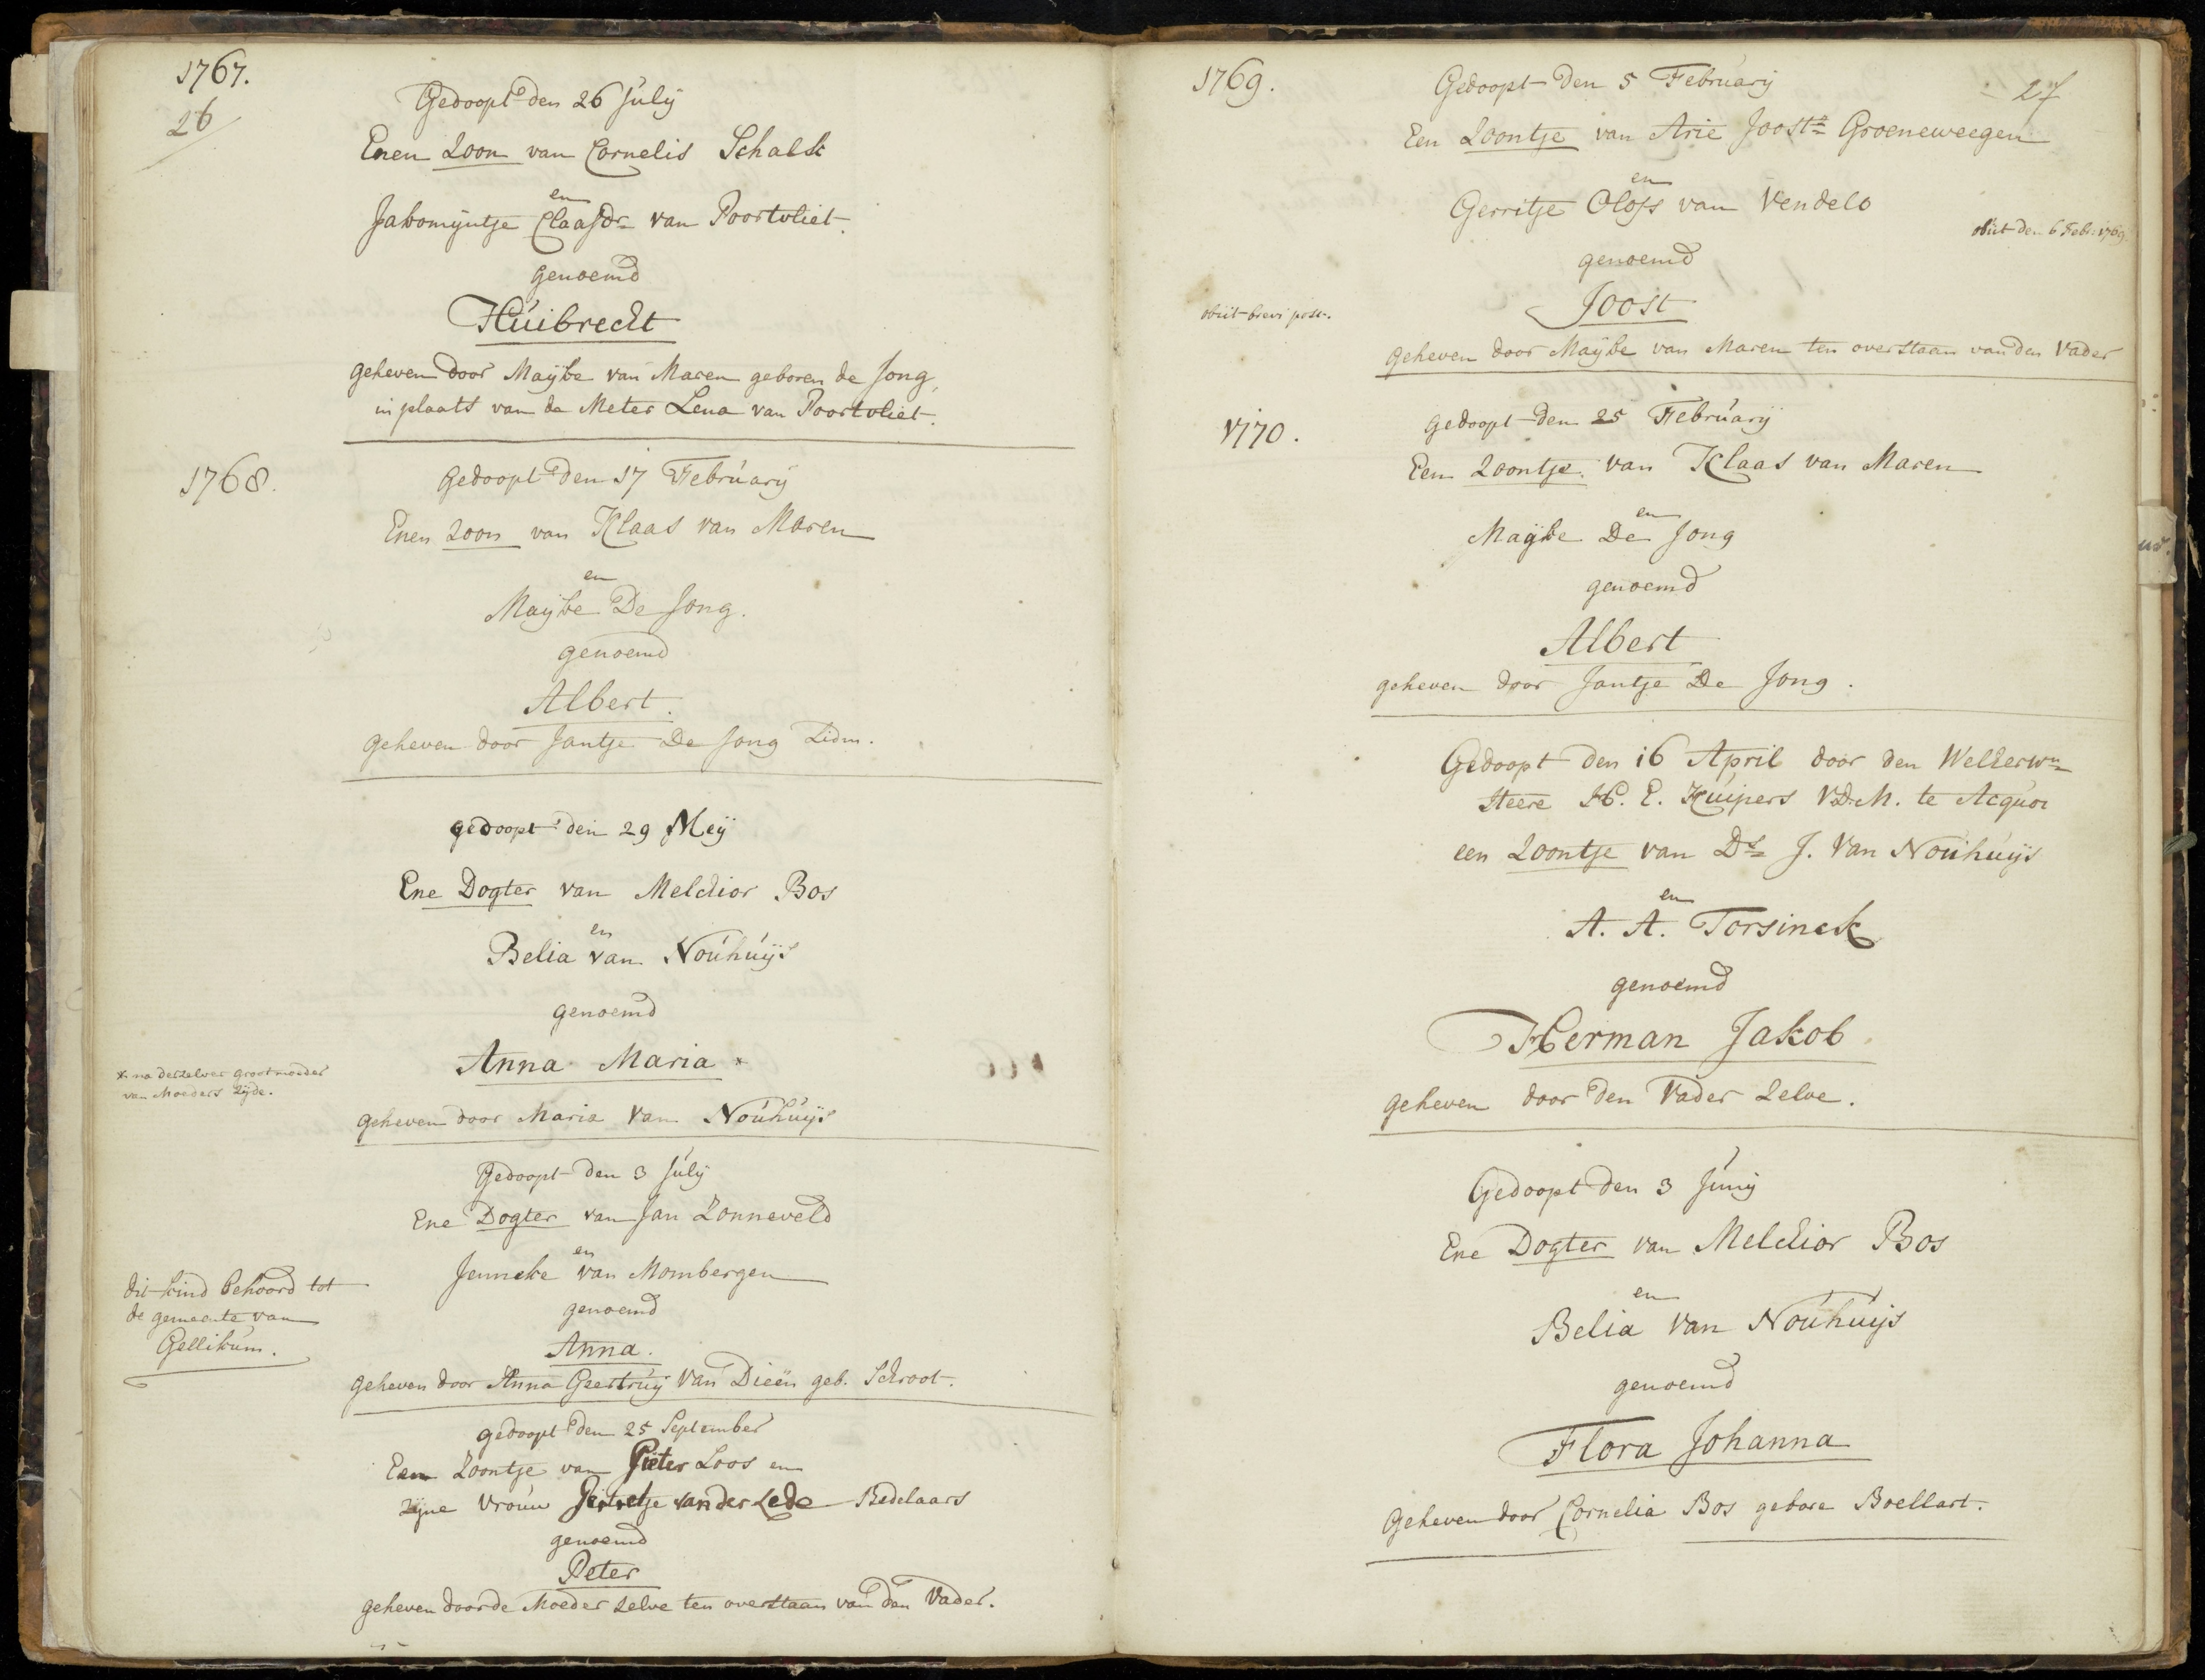 1767.
26
Gedoopt den 26 Julij
Enen Zoon van Cornelis Schalk
en
Jakomijntje Claasdr van Poortvliet.
genoemd
Huibrecht
geheven door Maijke van Maren geboren de Jong,
in plaats van de Meter Lena van Poortvliet.
1768.
gedoopt den 17 Februarij
Enen Zoon van Klaas van Maren
en
Maijke De Jong.
genoemd
Albert.
geheven door Jantje De Jong Lidm.
gedoopt den 29 Meij
Ene Dogter van Melchior Bos
en
Belia van Nouhuijs
genoemd
Anna Maria *
* na derzelver grootmoeder
van Moeders Zijde.
geheven door Maria van Nouhuijs
Gedoopt den 3 Julij
Ene Dogter van Jan Zonneveld
en
Jenneke van Mombergen
genoemd
Anna.
dit kind behoord tot
de gemeente van
Gellikum.
geheven door Anna Geertruij van Dieën geb. Schroot.
gedoopt den 25 September
Een Zoontje van Pieter Loos en
zijne Vrouw van der Lede Bedelaars
genoemd
Peter
geheven door de Moeder zelve ten overstaan van den Vader.
1769.
27
Gedoopt den 5 Februarij
Een Zoontje van Arie Joostz Groeneweegen
en
Gerritje Olofs van Vendelo
obiit den 6 Febr. 1769.
genoemd
Joost
obiit brevi post.
geheven door Maijke van Maren ten overstaan van den Vader
1770.
gedoopt den 25 Februarij
Een Zoontje van Klaas van Maren
en
Maijke De Jong
genoemd
Albert
geheven door Jantje De Jong.
Gedoopt den 16 April door den Welleerwn
Heere H. E. Kuipers V.D.M. te Acquoi
een Zoontje van Ds J. Van Nouhuijs
en
A. A. Torsinck
genoemd
Herman Jakob
geheven door den Vader Zelve.
Gedoopt den 3 Junij
Ene Dogter van Melchior Bos
en
Belia van Nouhuijs
genoemd
Flora Johanna
Geheven door Cornelia Bos gebore Boellart.